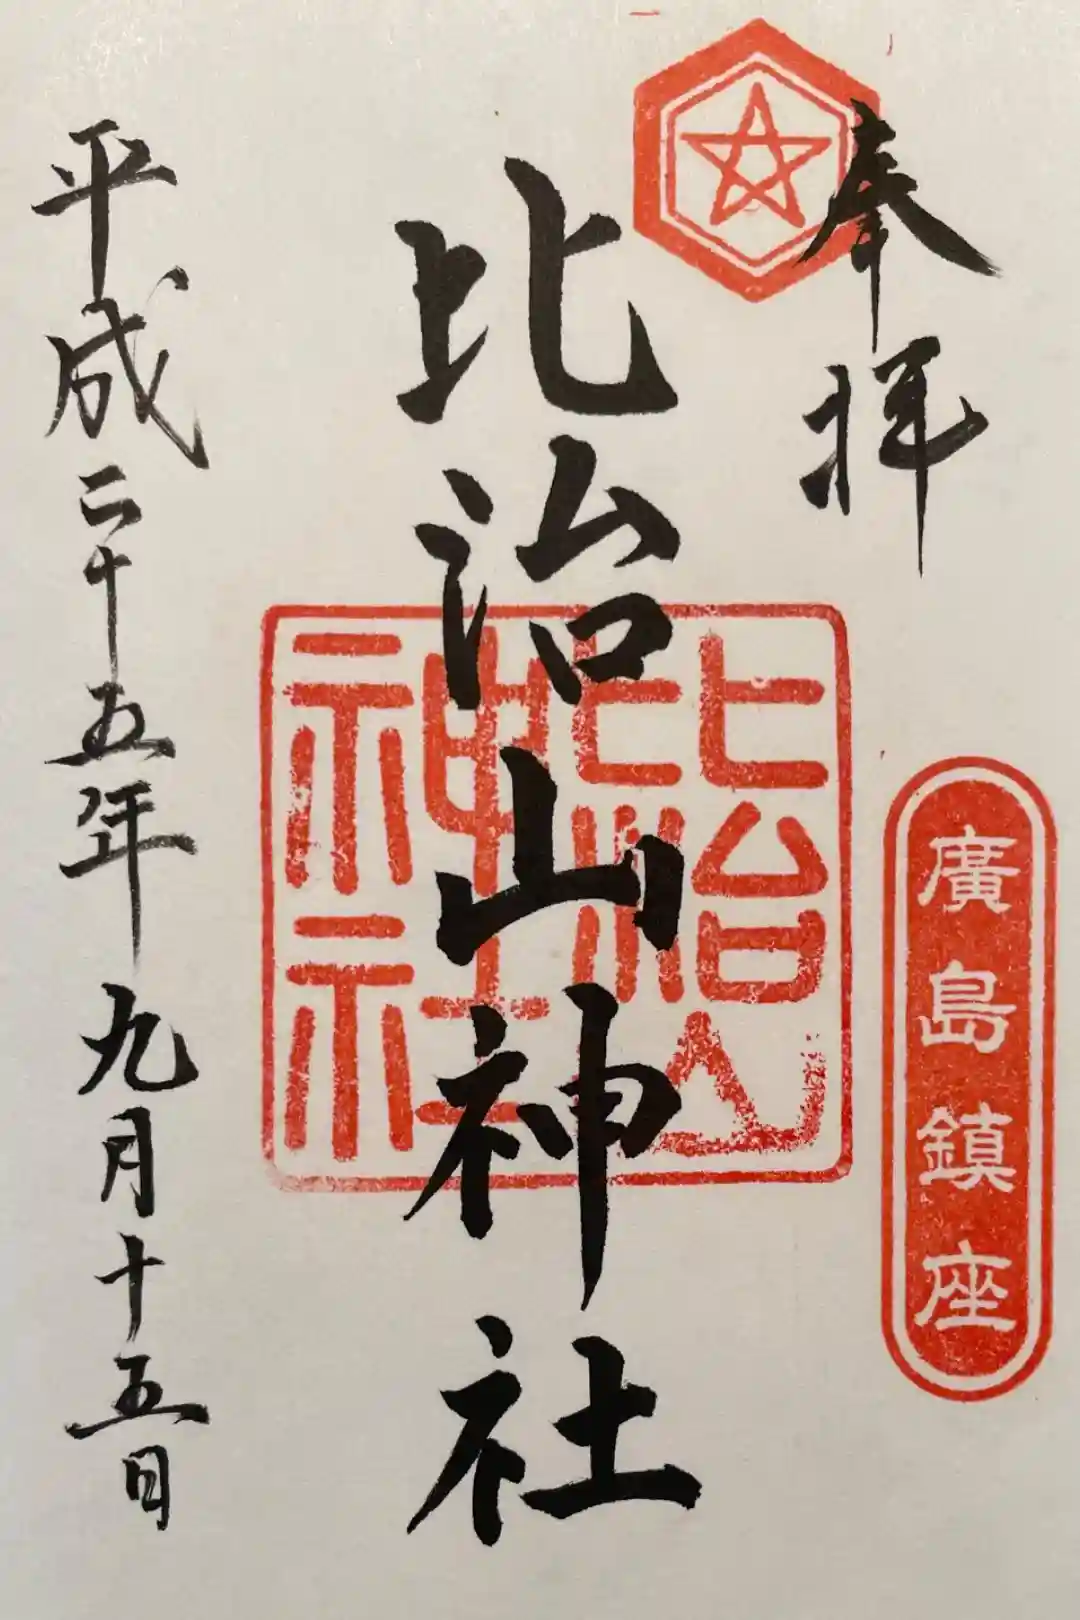 奉拝
廣島鎮座
比治山神社
比治山
神社
平成二十五年九月十五日